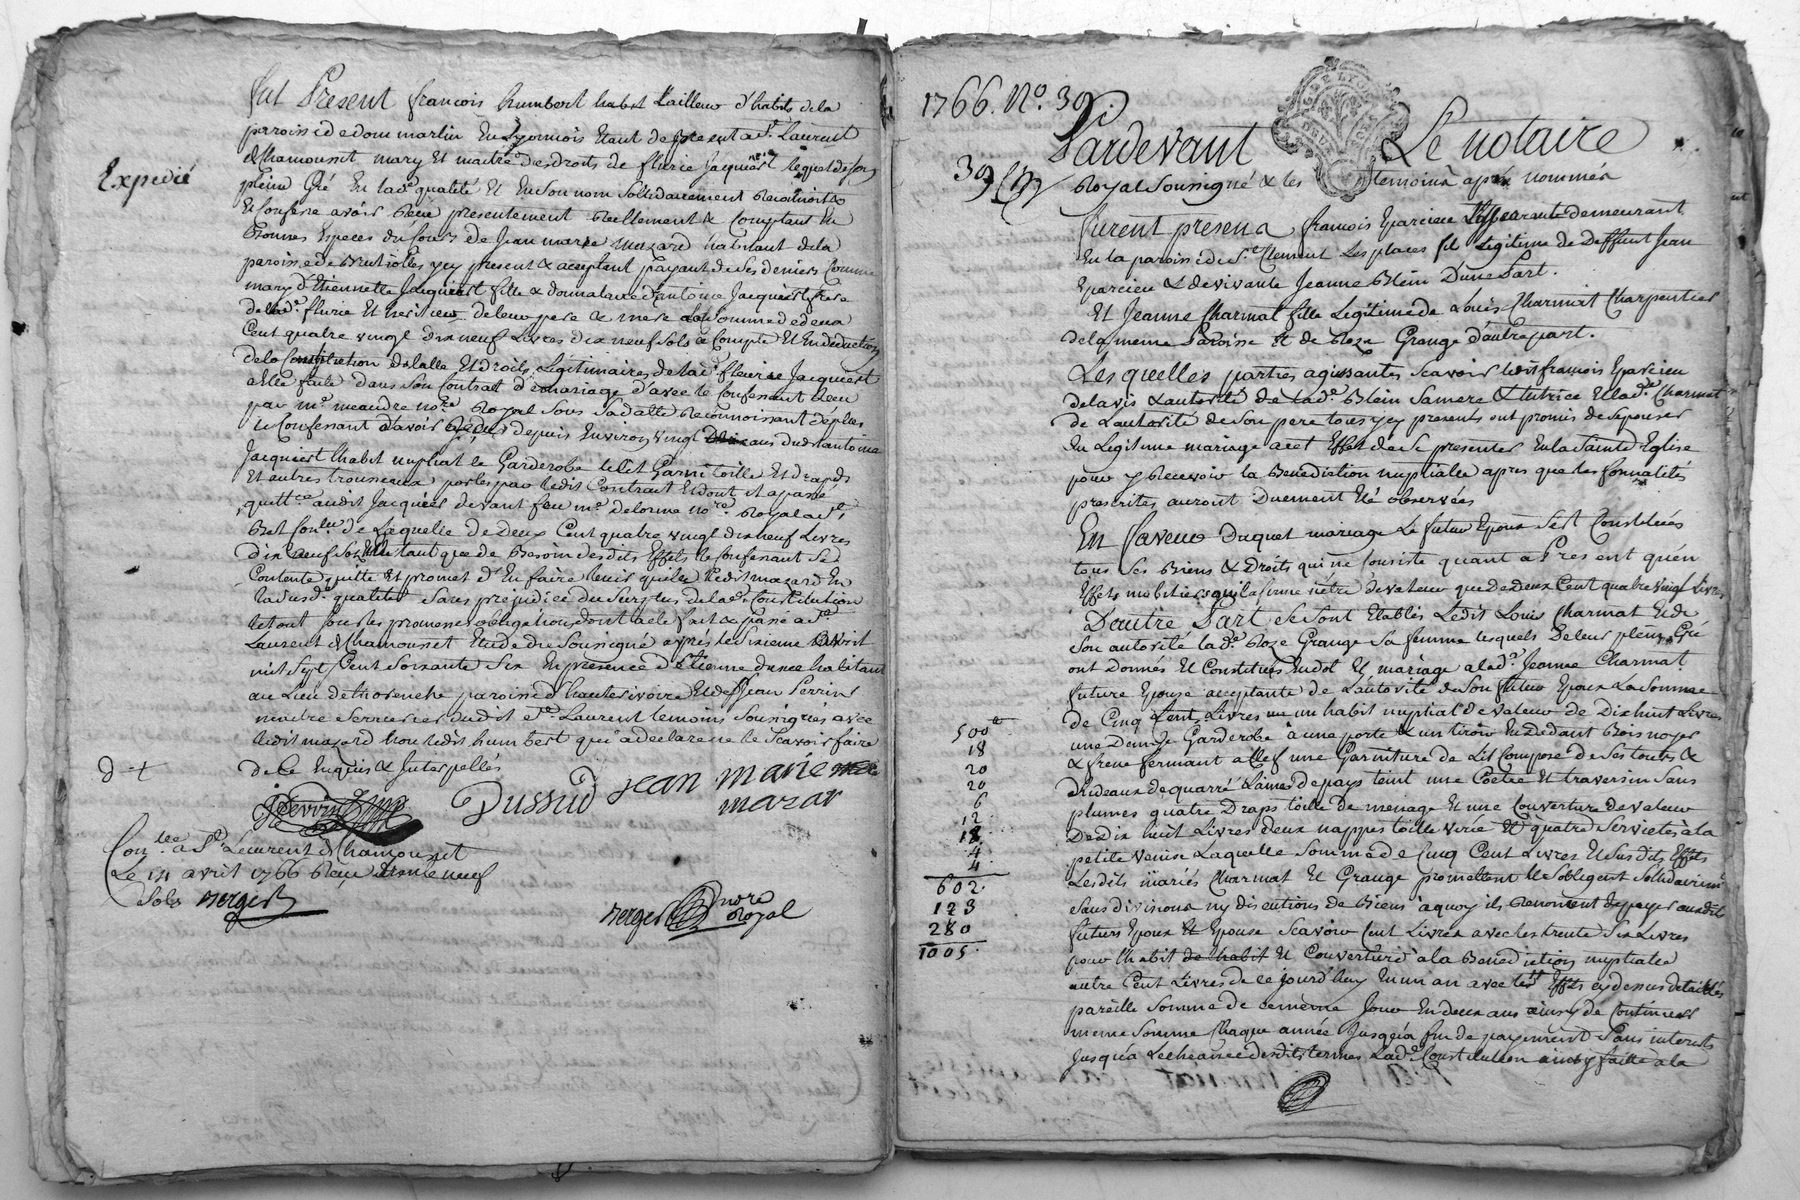 fut Present françois humbert habit tailleur d'habits de la
paroisse de dommartin En Lyonnois Etant de present a St. Laurent
de Chamousset, mary Et maitre des droits de fleurie Jacquiert lequel de son
Expedié
plein Gré En lad. qualité Et En son nom Sollidairement Reconnoit &
Et Confesse avoir Reçu presentement Reellement & Comptant En
Bonnes Especes du Cours de Jean marie mazard habitant de la
paroisse de Brussiolles ycy present & acceptant payant de ses deniers Comme
mary d'Etiennette Jacquiert fille & donnataire d'Antoine Jacquiert frere
de lad. fleurie Et heritier de leur pere & mere La Somme de deux
Cent quatre vingt dix neuf Livres dix neuf sols a Compte Et En deduction
de la Constitution dalalle Et droits Légitimaires de lad. fleurie Jacquiert
a Elle faite dans Son Contrat de mariage d'avec le Confessant Reçu
par Me. meandre nore. Royal Sous Sa datte Reconnoissant de plus
le Confessant d'avoir Reçu depuis Environ vingt ans dud. antoine
Jacquiert l'habit nuptial le Garderobe le lit Garni toille Et draps
Et autres trousseaux portés par ledit Contrat Et dont il a passé
quittce. audit Jacquiert devant feu Me. delorme nore. Royal a St.
de Laquelle de Deux Cent quatre vingt dix neuf Livres
dix neuf sols Ensemble tant que de Besoin desdits Effets le Confessant Se
Contente quitte Et promet d'En faire tenir quitte ledit mazard En
ladusd. qualité Sans prejudice du Surplus de lad. Constitution
le tout sous les promesses obligations dont acte fait & passé a St.
Laurent de Chamousset Etude du Soussigné après le Sixieme avril
mil Sept Cent Soixante Six En presence d'Etienne habitant
au Lieu de paroisse d'hauterivoire Et de Sr. Jean Perrin
maitre Serrurier dudit St. Laurent temoins Soussignés avec
ledit mazard Non ledit humbert qui a declaré ne le Scavoir faire
de Ce Enquis & Interpellés
d +
Perrin
Dussud
Jean marie
mazar
Conlée. a St. Laurent de Chamousset
Le 14 avril 1766 Reçu trente neuf
Sols Berger
Berger nore
Royal
1766. No. 39.
Pardevant Le notaire
39
Royal Soussigné & les temoins après nommés
furent presens françois Eparcieu demeurant
En la paroisse de St. Clement Les places fils Légitime de Deffunt Jean
Eparcieu & de vivante Jeanne Blein D'une Part.
Et Jeanne Charmat fille Légitime de Louis Charmat Charpentier
de la meme Paroisse Et de Roze Grange d'autre part.
Lesquelles parties agissantes Scavoir ledit françois Eparcieu
de lavis & autorité de lad. Blein Sa mere & tutrice Et lad. Charmat
de Lautorité de Son pere tous ycy presents ont promis de Sepouser
En Legitime mariage a cet Effet de se presenter En la Sainte Eglise
pour y Recevoir la Benediction nuptialle apres que les formalités
prescrites auront Duement Eté observées
En faveur Duquel mariage Le futur Epoux S'est Constitués
tous Ses Biens & Droits qui ne Consiste quant a Present qu'en
Effets mobiliers qu'il affirme n'etre de valeur que De deux Cent quatre vingt Livres
D'autre Part Se Sont Etablis Ledit Louis Charmat Et de
Son autorité lad. Roze Grange Sa femme lesquels De leur plein Gré
ont Donnés Et Constitués En dot Et mariage a lad. Jeanne Charmat
future Epouse acceptante de Lautorité de Son futur Epoux La Somme
de Cinq Cents Livres un habit nuptial de valeur de Dix huit Livres
une Demy Garderobe à une porte & un tiroir En dedant Bois noyer
& frene fermant a clef une Garniture de Lit Composé de Ses tours &
Rideaux de quarré Laine de pays teint une Coetre Et traversin Sans
plumes quatre Draps toille de menage Et une Couverture de valeur
De Dix huit Livres deux nappes toille virée Et quatre Serviettes à la
petite venise Laquelle Somme de Cinq Cent Livres Et Susdits Effets
Lesdits mariés Charmat Et Grange promettent Et S'obligent Sollidairemt.
Sans division ny discutions de Biens a quoy ils Renoncent De payer auxdits
futurs Epoux Et Epouse Scavoir Cent Livres avec les trente Six Livres
pour l'habit de l'habit Et Couverture a la Benediction nuptialle
autre Cent Livres de ce jourd'huy En un an avec les Effets cy dessus detaillés
pareille Somme de Ce meme Jour En deux ans ainsy de Continuer
meme Somme Chaque année Jusqu'a fin de payement Sans interets
Jusqu'a Lecheance desdits termes Lad. Constitution ainsy faitte a la
500
18
20
20
6
12
18
4
4
602
123
280
1005.